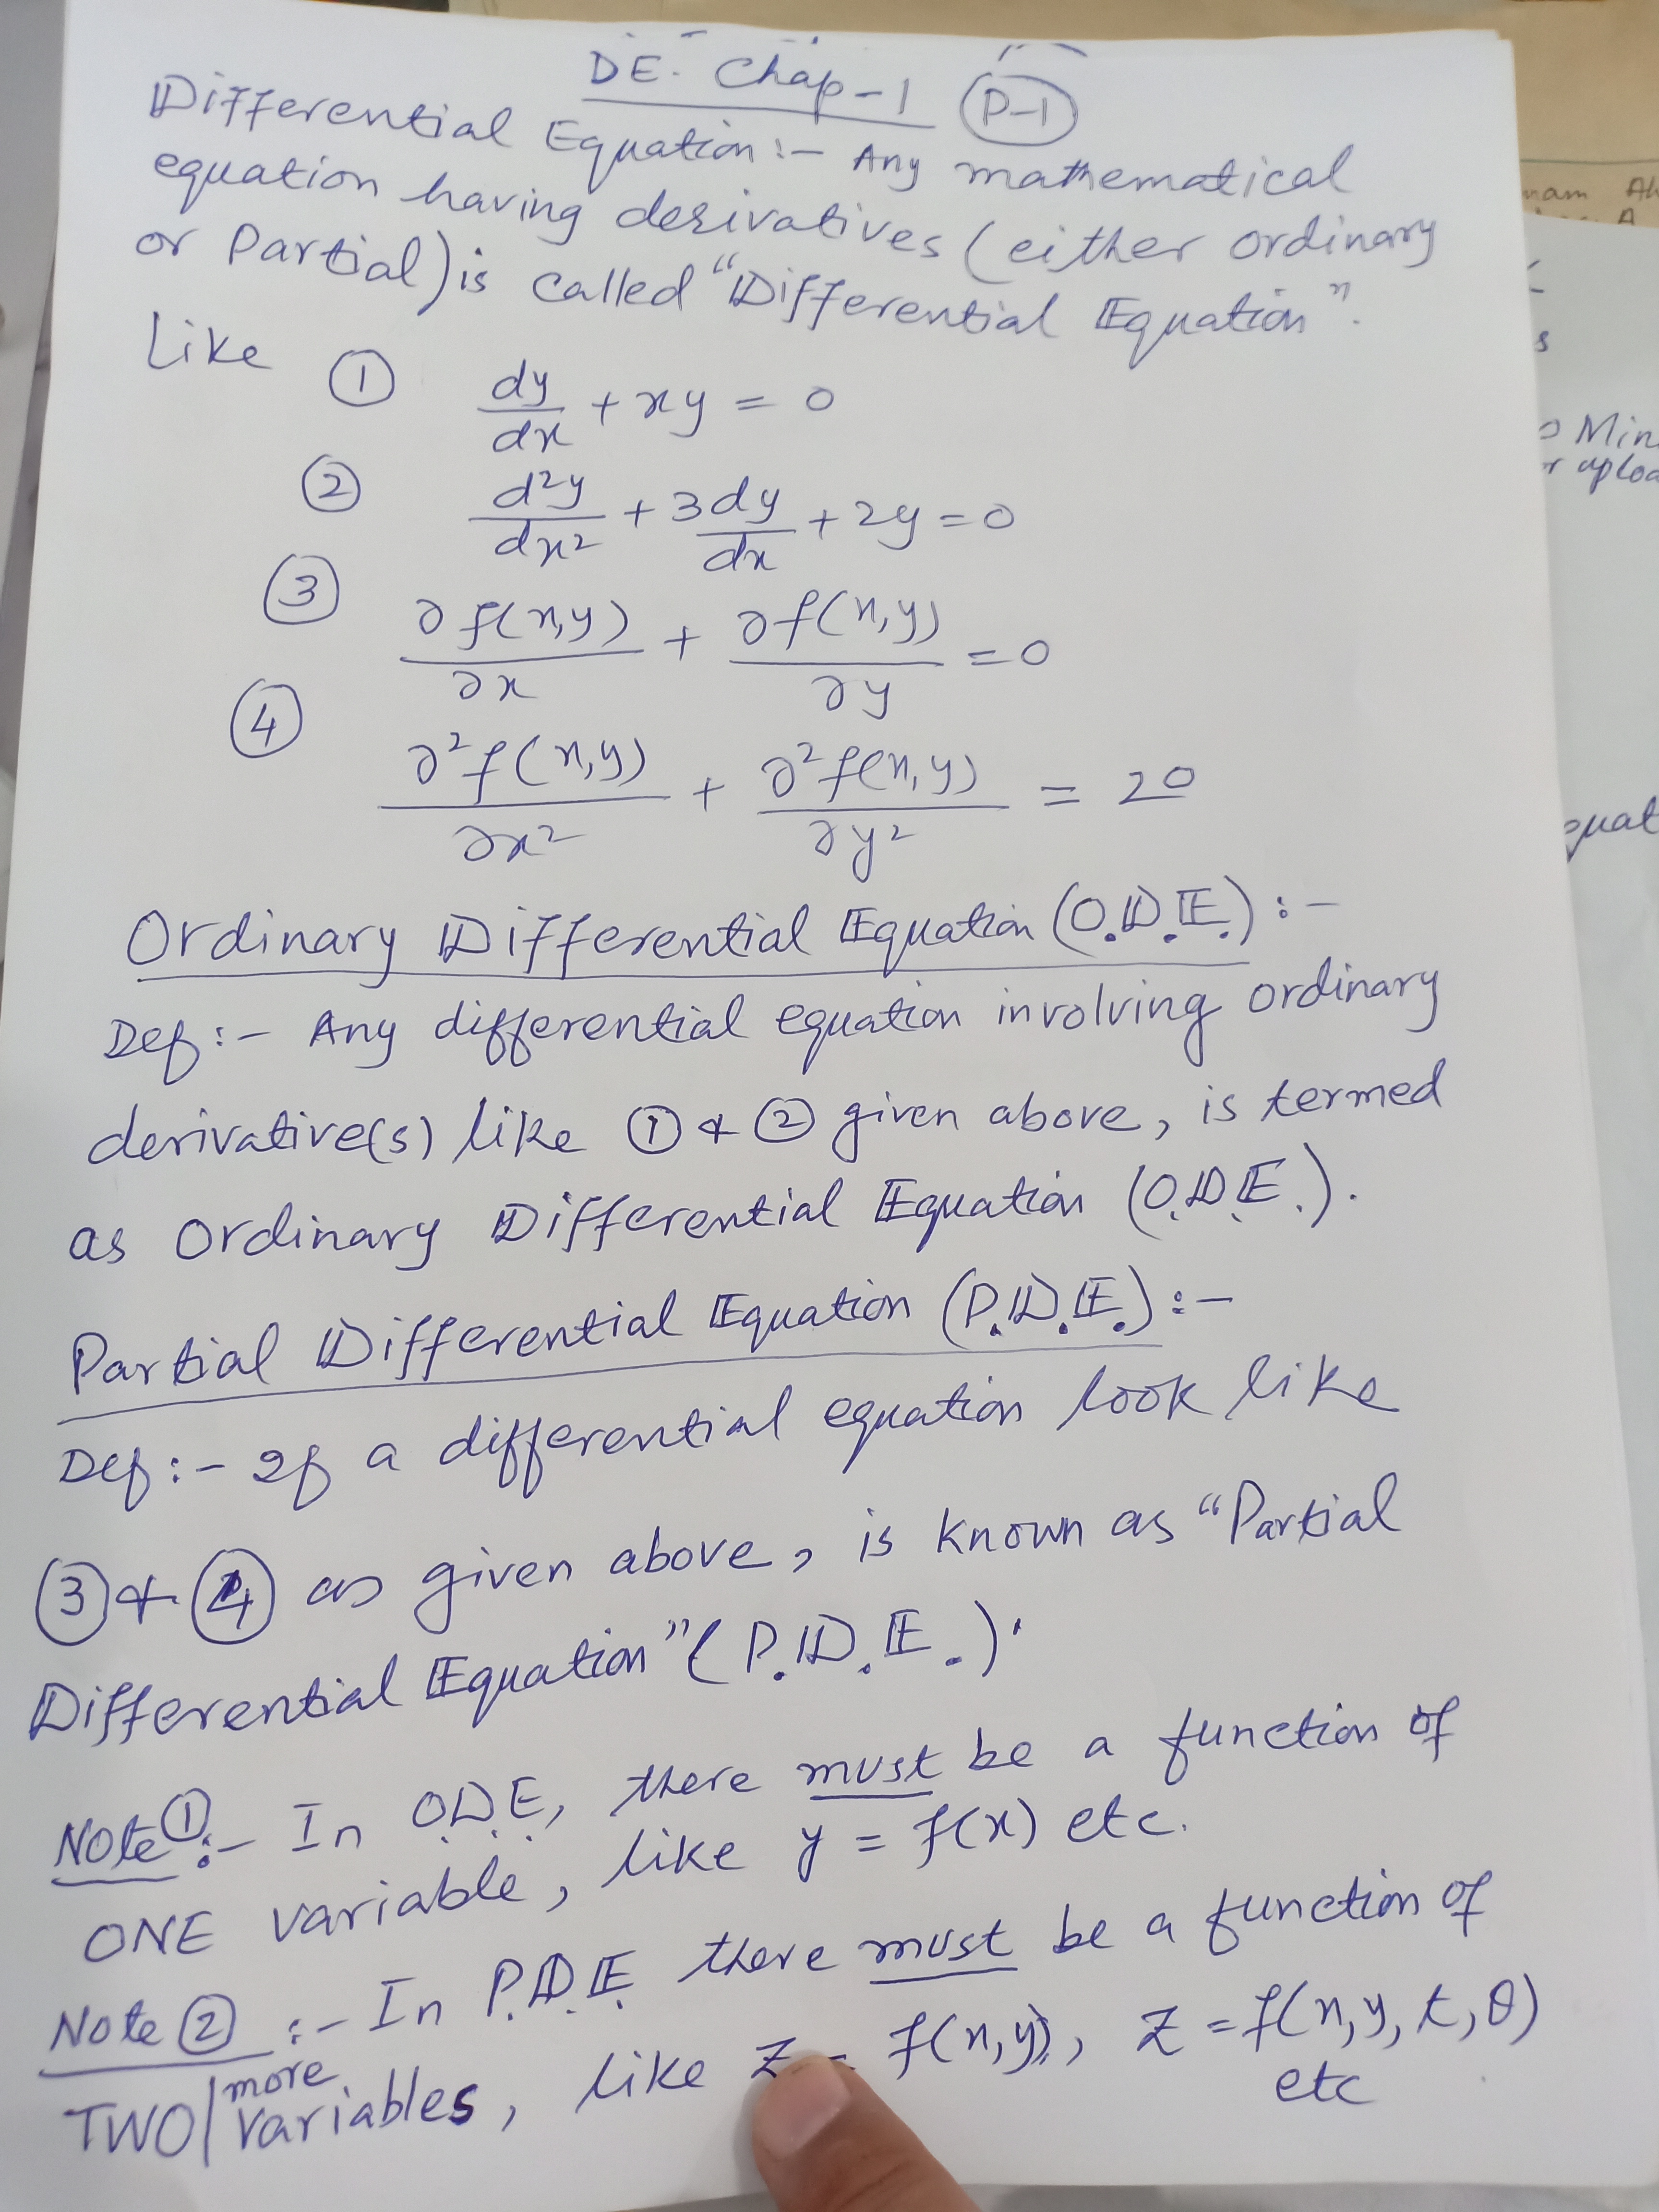 DE. Chap-1 (P-1)
Differential Equation:- Any mathematical
equation having derivatives (either ordinary
or Partial) is called "Differential Equation".
Like ① dy/dx + xy = 0
② d²y/dx² + 3dy/dx + 2y = 0
③ ∂f(x,y)/∂x + ∂f(x,y)/∂y = 0
④ ∂²f(x,y)/∂x² + ∂²f(x,y)/∂y² = 20
Ordinary Differential Equation (O.D.E.):-
Def:- Any differential equation involving ordinary
derivative(s) like ① & ② given above, is termed
as Ordinary Differential Equation (O.D.E.).
Partial Differential Equation (P.D.E.):-
Def:- If a differential equation look like
③ & ④ as given above, is known as "Partial
Differential Equation" (P.D.E.).
Note ①:- In O.D.E, there must be a function of
ONE variable, like y = f(x) etc.
Note ② :- In P.D.E. there must be a function of
TWO/more variables, like z = f(x,y), z = f(x,y,t,θ)
etc
nam
Min